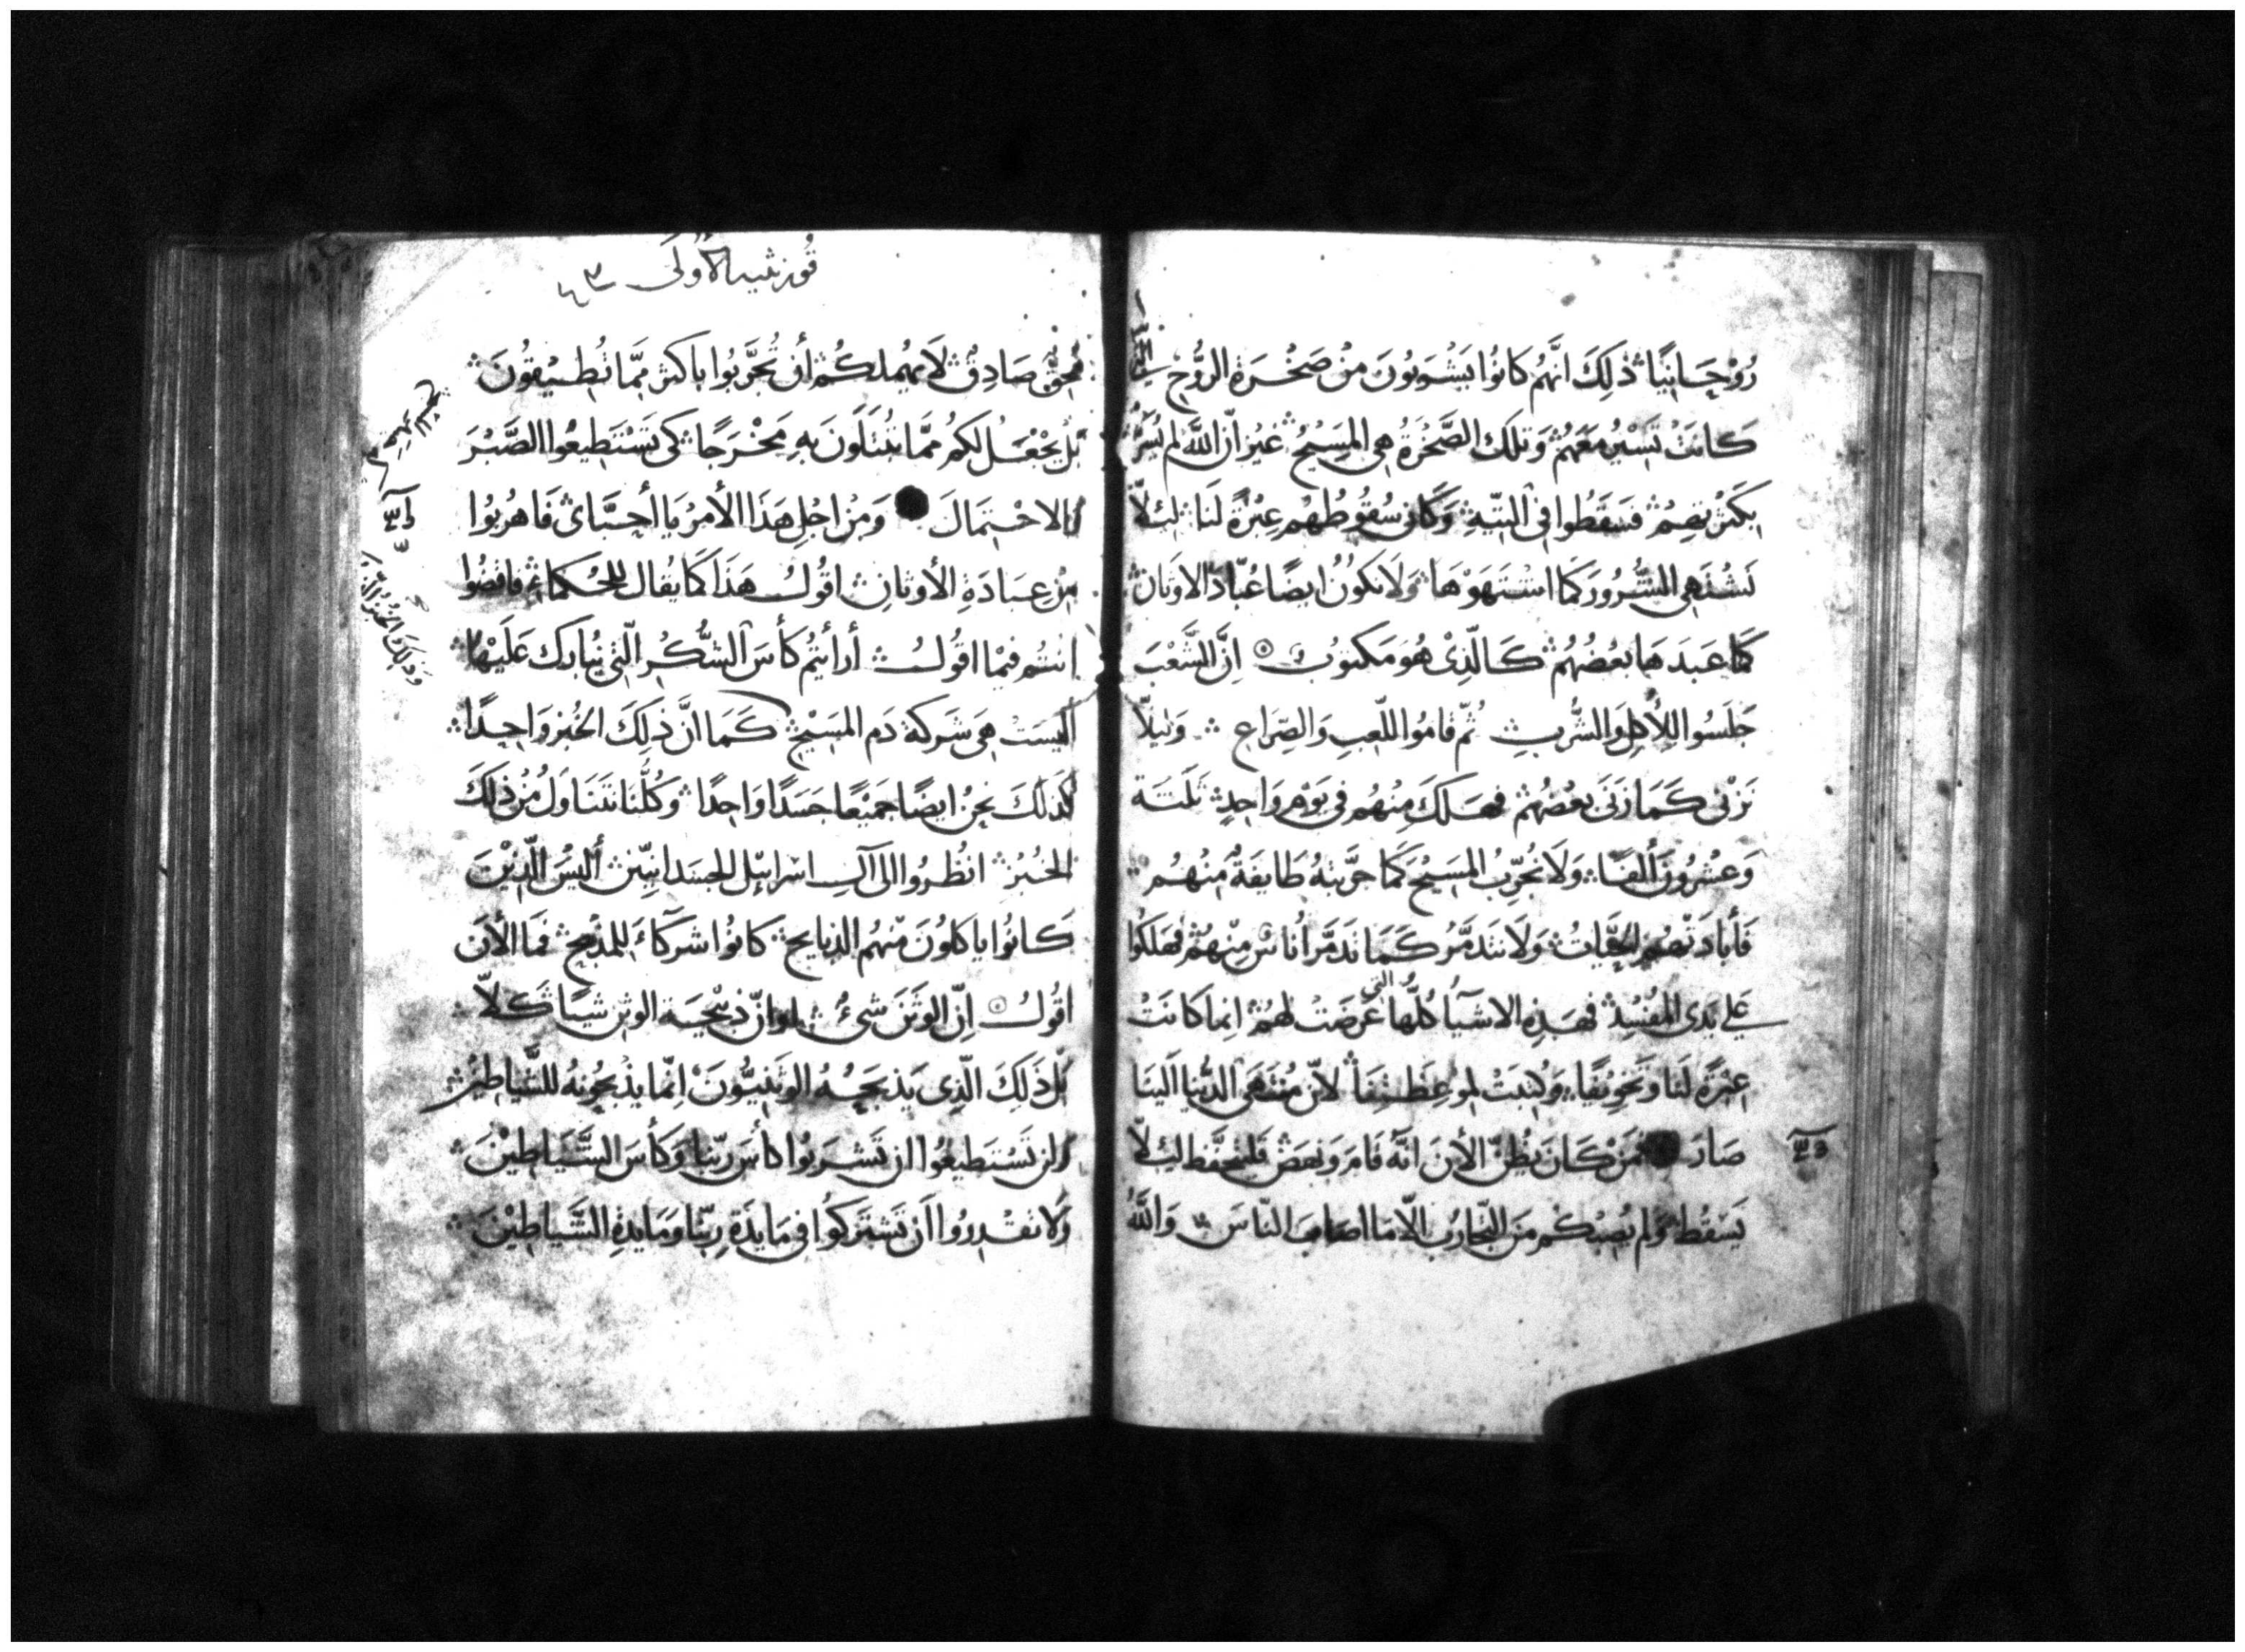 رُوْحَانِيًا ذٰلِكَ انَّهُم كَانوُا يَشْرَبُونَ مِنْ صَخْرَة الرُّوْحِ التى
كَانَتْ تَسْيرُ مَعَهُمْ وَتلكَ الصَّخْرَةُ هِى المَسِيْحُ غيْرَ انّ الله لم يُسَرَّ
بكَثرتهِمُ فسَقَطُوا فِى التّيهِ وَكَان سُقوُطُهُم عِبْرَةً لَنَا لئِلاّ
نَشْتَهِى الشُّرُورَ كمَا اشتَهَوْهَا وَلَا نكوُنُ ايضًا عُبّادَ الاوثان
كمَا عَبَدَهَا بعْضُهُمْ كَالّذِىْ هُوَ مَكتوُبُ اِنَّ الشَّعْبَ
جَلَسُوا للِأكِل وَالشُّربِ ثُمّ قامُوا للّعِبِ وَالصِّرَاعِ وَلئِلّا
نَزْنى كَمَا زَنىَ بعْضُهُمْ فهَلَكَ مِنْهُم فى يَوْمٍ وَاحِدٍ ثَلثَة
وَعُشرُونَ ألفًا وَلَا نُجَرِّبُ المَسِيْحَ كَمَا جَرَّبَهُ طَايفَةٌ مِنْهُمْ
فَأبَادَتْهُم الحَيَّاتُ وَلَا نتَذَمَّرُ كَمَا تَذَمَّرَ أُنَاسٌ مِنْهُمْ فهَلكُوا
عَلى يَدَى المُفْسِدُ فهَذِهِ الاشيآُ كُلّهَا التى عَرَضَتْ لهُمْ انما كانَتْ
عِبْرَةً لنَا وَتخويفًا وَكُتِبَتْ لموعِظَتِنَا لأنّ مُنْتَهَى الدُّنيا الَينَا
صَارَ فمَنْ كَانَ يَظُنّ الأنَ انّهُ قَامَ وَنهَضَ فَليَتحَفَّظ لئِلّا
يَسْقُطَ وَلم يُصِبْكُم مَنَ التّجَارُبِ الّا مَا اصَابَ النّاسَ وَاللهُ
قورنثيه الأولى
مُحِقٌ صَادِقٌ لَا يُهملكُمْ أن تُجَرَّبُوا باكثر مِمّا تُطِيْقوُنَ
بَلْ يَجْعَلُ لكمُ ممَّا تُبْتَلَونَ بهِ مَخْرَجًا كى تَسْتَطِيعُوا الصَّبْرَ
والاحْتِمَالَ وَمِن اجْلِ هَذَا الأمرُ يَا أحِبَّاىَ فَاهرُبُوا
مِنْ عِبَادَةِ الأوثانِ اقُولُ هَذَا كمَا يُقال للحُكمَاءِ فاقضُوا
انتُم فيْمَا اقُولُ أرأيْتُم كَأسَ الشُّكْرِ الّتِى نُبَارك عَلَيْهَا
الَيسَتْ هِىَ شَركة دَم المَسِيْح كَمَا انَّ ذلِكَ الخُبز وَاحِدًا
كذَلكَ نحِنُ ايضًا جَميْعًا جَسَدًا وَاحِدًا وَكُلُّنَا نتَنَاوَلُ مِنْ ذلكَ
الخُبْزُ انظُرُوا الىَ آلِ اسْرايئل الجسَدانيّين أليْسَ الّذِيْنَ
كَانوُا ياكلوُنَ مَنْهُم الذبايح كانوُا شركَآءَ للمذبح فمَا الأنَ
اقُولُ اِنّ الوَثنَ شىءٌ او انّ ذبِيْحَة الوثن شيئًا كلّا
بَل ذَلِكَ الّذِى يَذبَحِهُ الوَثنِيُّونَ اِنّما يَذْبحُونهُ للشَّياطِيْن
ولن تَسْتَطيعُوا ان تَشرَبُوا كاسَ ربّنا وَكأسَ الشَّيَاطِيْنَ
وَلا تقْدِروُا اَن تَشترَكوُا فى مَايدَة رِبّنا وَمَايدَةِ الشَّيَاطِيْنَ